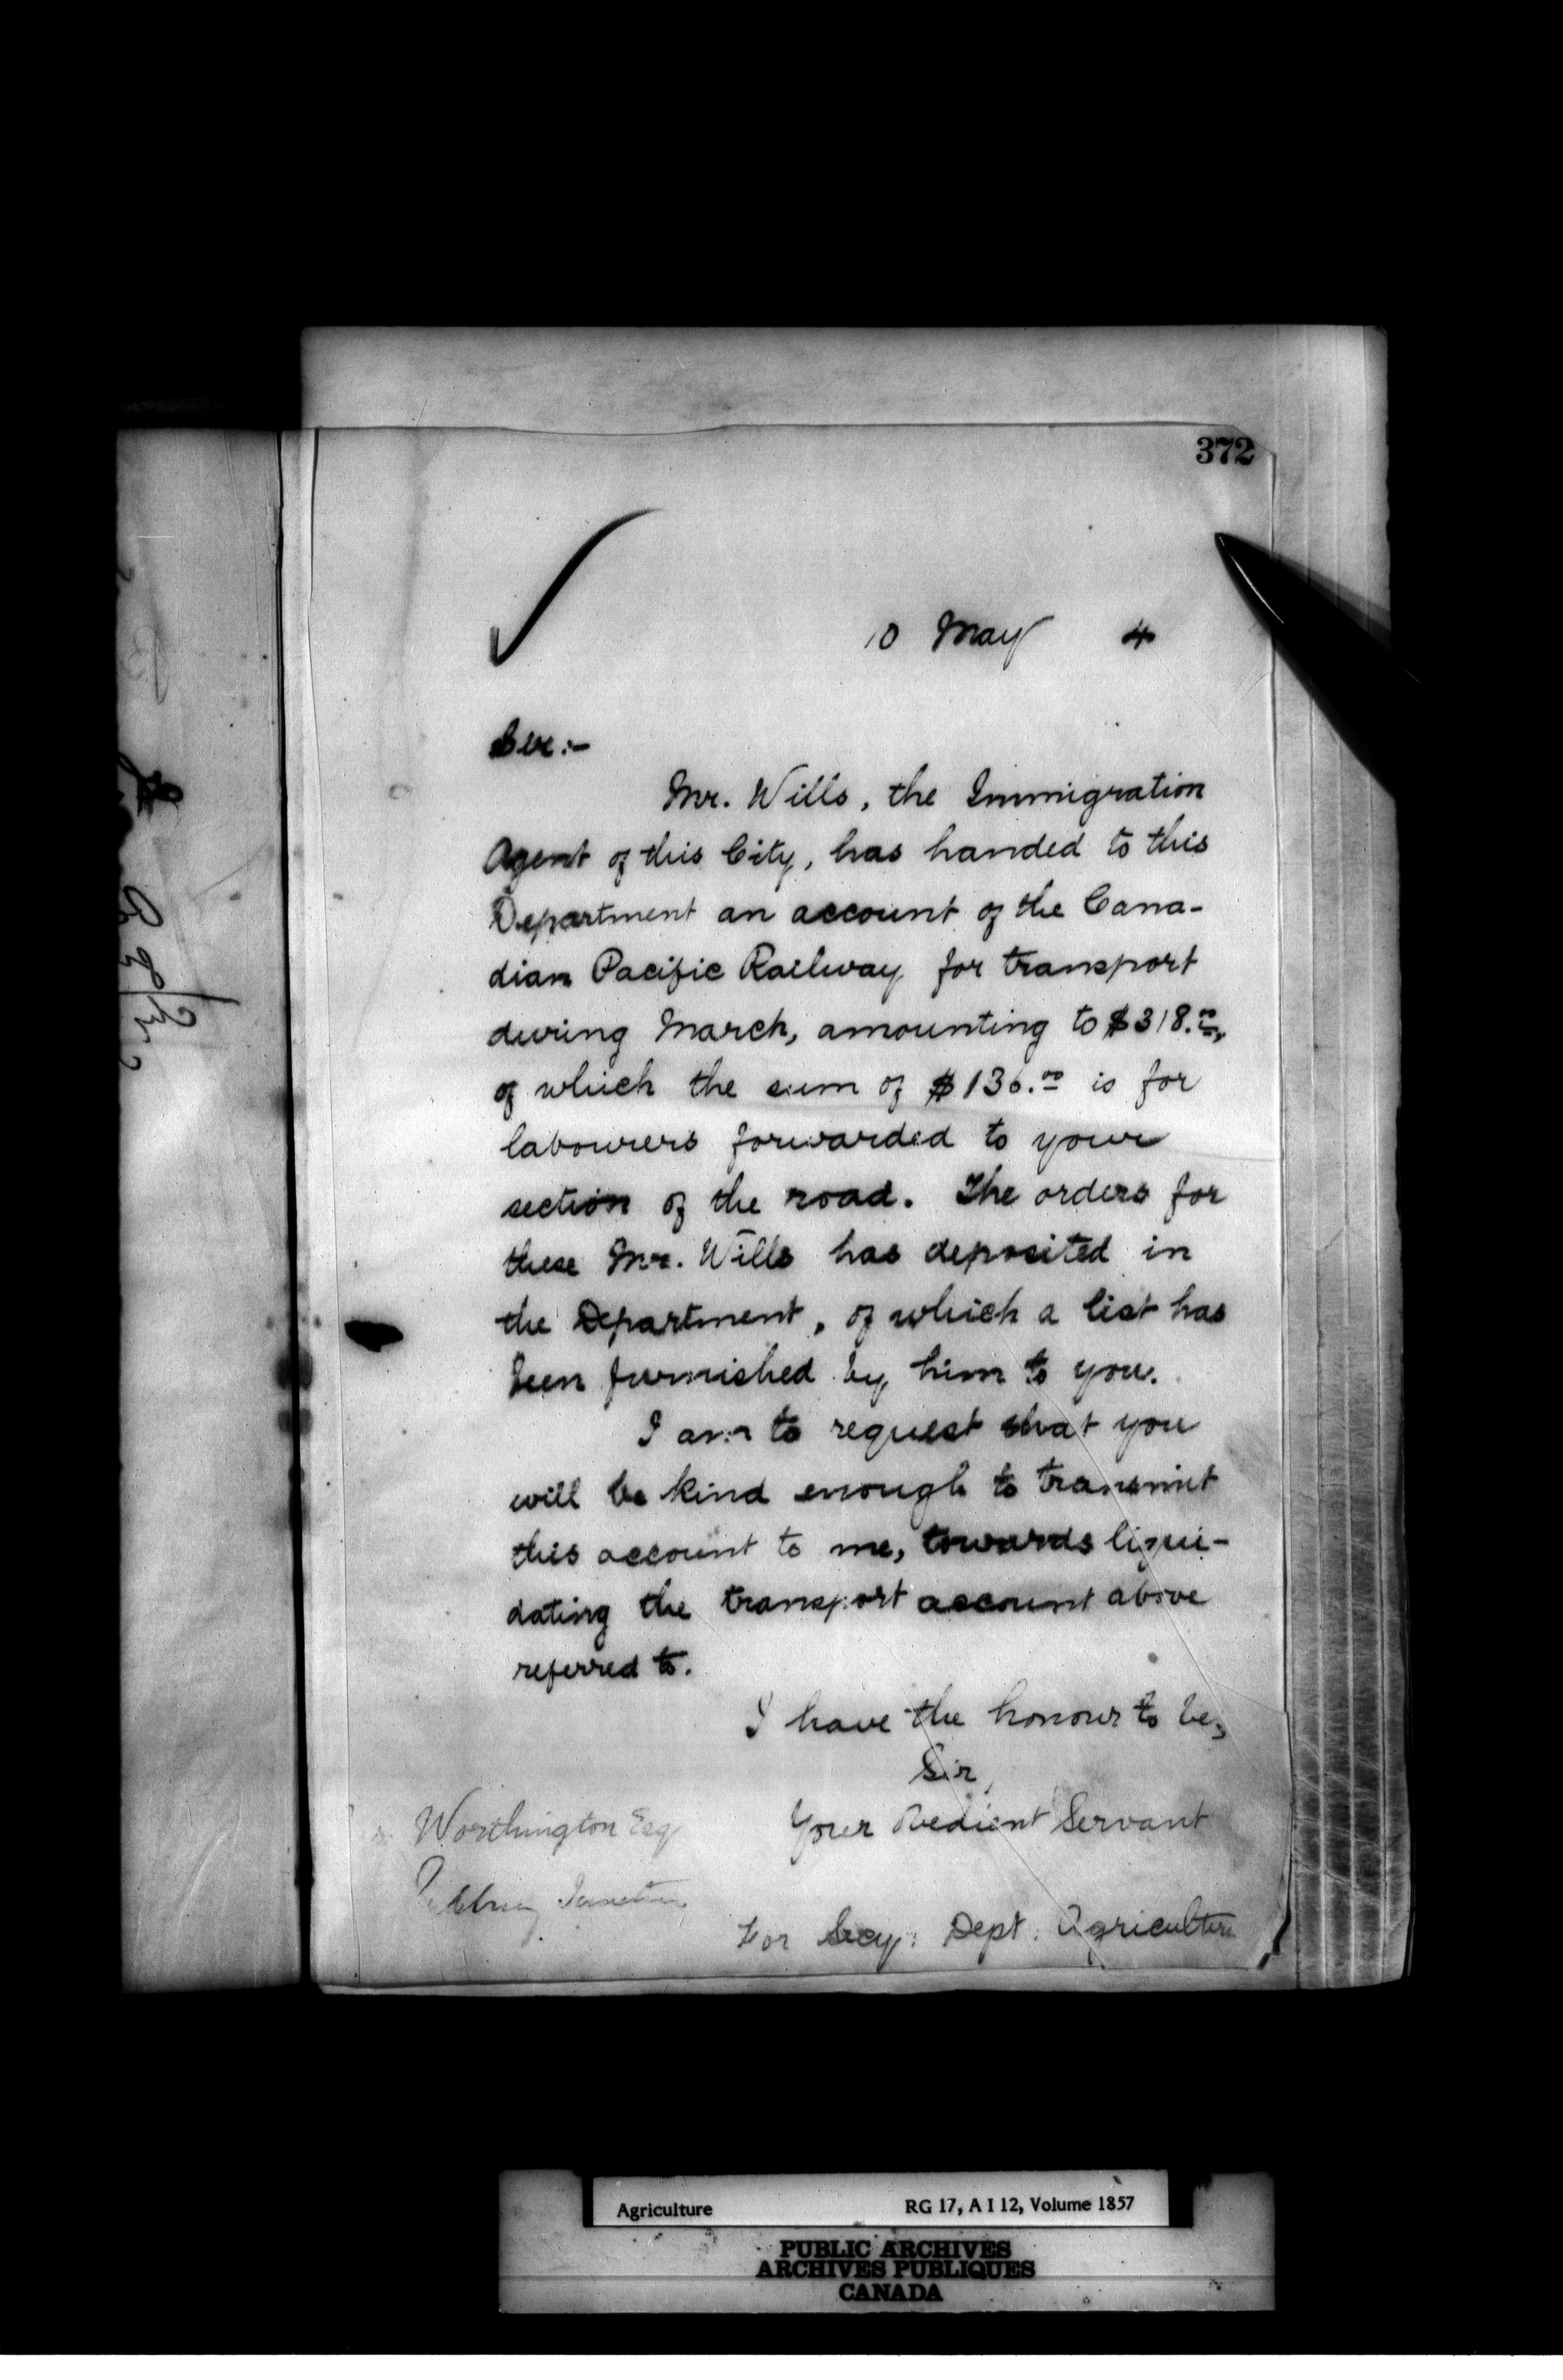 372
10 May 4
Sir:-
Mr. Wills, the Immigration
Agent of this City, has handed to this
Department an account of the Cana-
dian Pacific Railway for transport
during March, amounting to $318.00,
of which the sum of $136.00 is for
labourers forwarded to your
section of the road. The orders for
these Mr. Wills has deposited in
the Department, of which a list has
been furnished by him to you.
I am to request that you
will be kind enough to transmit
this account to me, towards liqui-
dating the transport account above
referred to.
I have the honour to be,
Sir,
Your Obedient Servant
Worthington Esq
Junction
For Secy: Dept: Agriculture
Agriculture RG 17, A I 12, Volume 1857
PUBLIC ARCHIVES
ARCHIVES PUBLIQUES
CANADA